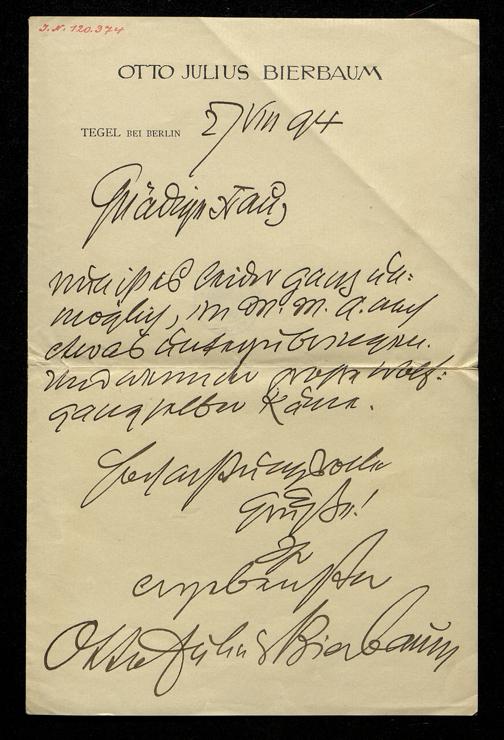 J. N. 120.374
OTTO JULIUS BIERBAUM
TEGEL BEI BERLIN
27 VIII 94
Gnädige Frau,
nun ist es leider ganz un=
möglich, im M. M. A. auch
etwas unterzubringen.
Und wenn der große Wolf=
gang selber käme.
Hochachtungsvolle
Grüße!
Ihr
ergebenster
Otto Julius Bierbaum